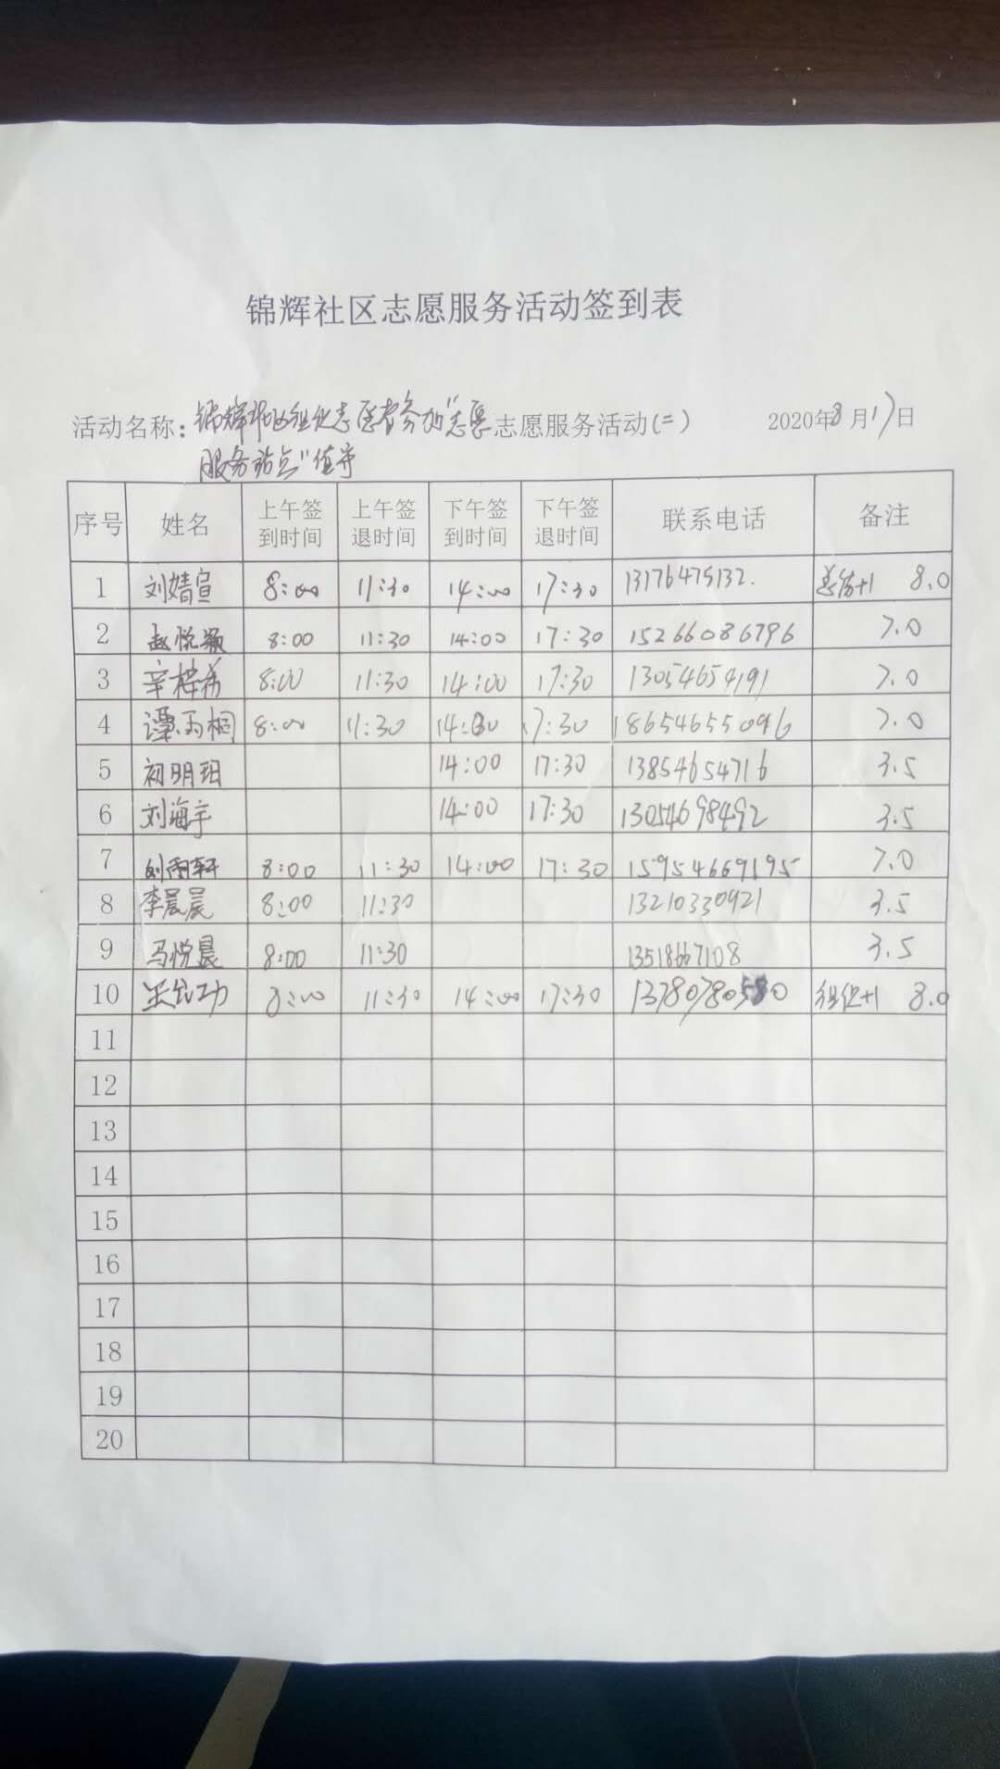 锦辉社区志愿服务活动签到表
活动名称:锦辉社区组织志愿者参加"志愿志愿服务活动(二) 2020年8月17日
服务站点"值守
序号 姓名 上午签到时间 上午签退时间 下午签到时间 下午签退时间 联系电话 备注
1 刘婧宣 8:00 11:30 14:00 17:30 13176475132. 总结+1 8.0
2 赵悦颖 8:00 11:30 14:00 17:30 15266086796 7.0
3 辛梓希 8:00 11:30 14:00 17:30 13054654191 7.0
4 谭雨桐 8:00 11:30 14:00 17:30 18654655096 7.0
5 初明珇 14:00 17:30 13854654716 3.5
6 刘海宇 14:00 17:30 13054698492 3.5
7 刘雨轩 8:00 11:30 14:00 17:30 15954669195 7.0
8 李晨晨 8:00 11:30 13210330921 3.5
9 马悦晨 8:00 11:30 13518667108 3.5
10 8:00 11:30 14:00 17:30 组织+1 8.0
11
12
13
14
15
16
17
18
19
20